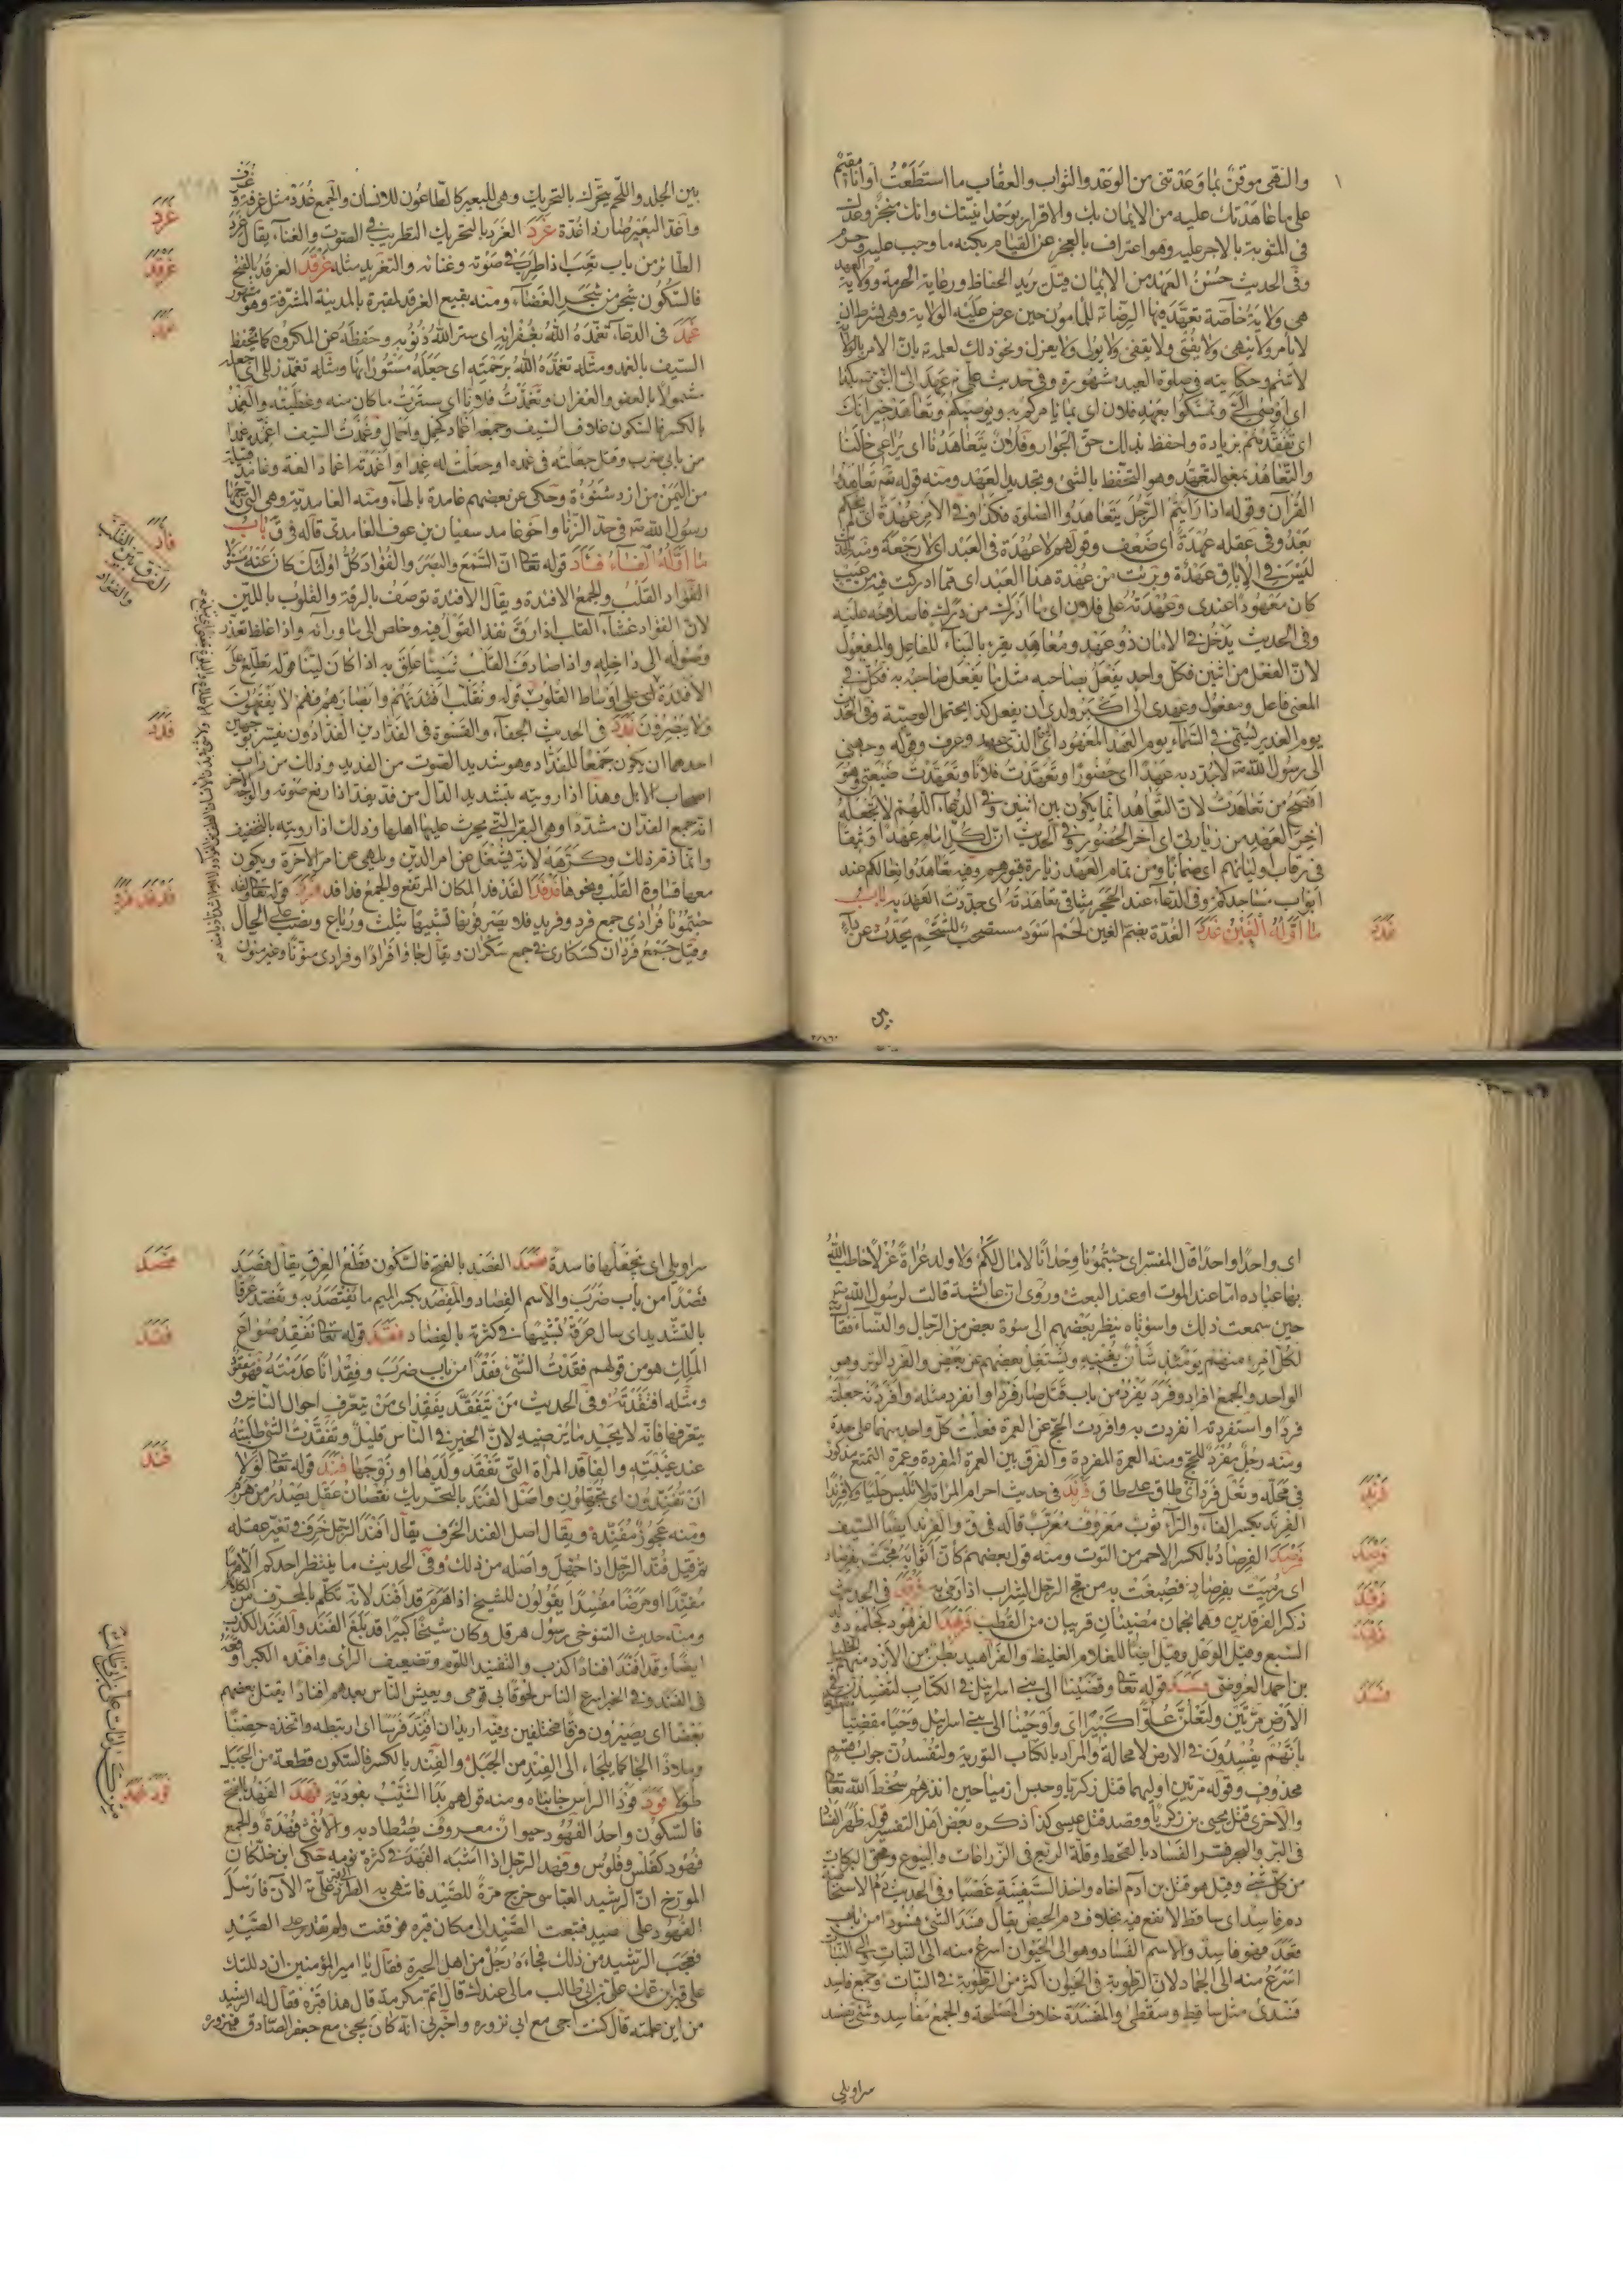 والنهى موقن بما وعدتنى من الوعد والثواب والعقاب ما استطعت او انا مقيم
على ما عاهدتك عليه من الايمان بك والاقرار بوحدانيتك وانك منجز وعدك
فى المثوبة بالاجر عليه وهو اعتراف بالعجز عن القيام بكنه ما وجب عليه
وفى الحديث حسن العهد من الايمان قيل يريد الحفاظ ورعاية الحرمة وولاية العهد
هى ولاية خاصة تعهد بها الرضا ع للمامون حين عرض عليه الولاية وهى بشرط ان
لا يامر ولا ينهى ولا يفتى ولا يقضى ولا يولى ولا يعزل ونحو ذلك لعلمه بان الامر
لا يتم وحكايته فى صلوة العيد مشهورة وفى حديث على ع عهد الى النبى
اى اوصى الى وتمسكوا بعهد فلان اى بما يامركم به ويوصيكم وتعاهد جيرانك
اى تفقدهم بزيادة واحفظ بذلك حق الجوار وفلان يتعاهدنا اى يراعى حالنا
والتعاهد بمعنى التعهد وهو التحفظ بالشئ وتجديد العهد ومنه قوله تعاهدوا
القرآن وقوله اذا رايتم الرجل يتعاهد الصلوة فكذا وفى الامر عهدة اى لم يحكم
بعد وفى عقله عهدة اى ضعف وقولهم لا عهدة فى العبد اى لا رجعة
ليس فى الاباق عهدة وبرئت من عهدة هذا العبد اى مما ادركت فيه من عيب
كان معهودا عندى وعهدته على فلان اى ما ادرك من درك فاصلاحه عليه
وفى الحديث يدخل فى الامان ذو عهد ومعاهد يقرء بالبناء للفاعل والمفعول
لان الفعل من اثنين فكل واحد يفعل بصاحبه مثل ما يفعل صاحبه به فكل فى
المعنى فاعل ومفعول وعهدى الى اكبر ولدى ان يفعل كذا يحتمل الوصية وفى
يوم الغدير ليسمى فى السماء يوم العهد المعهود اى الذى عهد وعرف وقوله وجهنى
الى رسول الله ص لاجدد به عهدا اى حضورا وتعهدت فلانا وتعهدت ضيعتى وهو
افصح من تعاهدت لان التعاهد انما يكون بين اثنين وفى الدعاء اللهم لا تجعله
اخر العهد من زيارتى اى آخر الحضور وفى الحديث ان لكل امام عهدا وثيقا
فى رقاب اوليائهم اى ضمانا ومن تمام العهد زيارة قبورهم وفيه تعاهدوا نعالكم عند
ابواب مساجدكم وفى الدعاء عند الحجر ميثاقى تعاهدته اى جددت العهد به باب
ما اوله الغين غدد الغدة بضم الغين لحم اسود مستصحب للشحم يحدث عن داء
غدد
بين
بين الجلد واللحم يتحرك بالتحريك وهى للبعير كالطاعون للانسان والجمع غدد مثل غرفة وغرف
واغد البعير صار ذا غدة غرد الغرد بالتحريك التطريب فى الصوت والغناء يقال غرد
الطائر من باب تعب اذا طرب فى صوته وغنائه والتغريد مثله غرقد الغرقد بالفتح
فالسكون شجر من شجر الغضاء ومنه بقيع الغرقد لمقبرة بالمدينة المشرفة وهو مشهور
غمد فى الدعاء تغمده الله بغفرانه اى ستر الله ذنوبه وحفظه عن المكروه كما يحفظ
السيف بالغمد ومثله تغمده الله برحمته اى جعله مستورا بها ومثله تغمد زللى اى جعله
مشمولا بالعفو والغفران وتغمدت فلانا اى سترت ما كان منه وغطيته والغمد
بالكسر فالسكون غلاف السيف وجمعه اغماد كحمل واحمال وغمدت السيف اغمده غمدا
من بابى ضرب وقتل جعلته فى غمده او جعلت له غمدا واغمدته اغمادا لغة وغامد قبيلة
من اليمن من ازد شنوءة وحكى عن بعضهم غامدة بالهاء ومنه الغامدية وهى التى رجمها
رسول الله ص فى حد الزنا واخو غامد سفيان بن عوف الغامدى قاله فى ق باب
ما اوله الفاء فئد قوله تعالى ان السمع والبصر والفؤاد كل اولئك كان عنه مسئولا
الفؤاد القلب والجمع الافئدة ويقال الافئدة توصف بالرقة والقلوب باللين
لان الفؤاد غشاء القلب اذا رق نفذ القول فيه وخلص الى ما ورائه واذا غلظ تعذر
وصوله الى داخله واذا صادف القلب شيئا علق به اذا كان لينا قوله تطلع على
الافئدة اى على اوساط القلوب قوله ونقلب افئدتهم وابصارهم فهم لا يفقهون
ولا يبصرون فدد فى الحديث الجفاء والقسوة فى الفدادين الفدادون يفسر بوجهين
احدهما ان يكون جمعا للفداد وهو شديد الصوت من الفديد وذلك من داب
اصحاب الابل وهذا اذا رويته بتشديد الدال من فد يفد اذا رفع صوته والوجه الآخر
انه جمع الفدان مشددا وهى البقر التى يحرث عليها اهلها وذلك اذا رويته بالتخفيف
وانما ذم ذلك وكرهه لانه يشغل عن امر الدين ويلهى عن امر الآخرة ويكون
معها قساوة القلب ونحوها فدفد الفدفد المكان المرتفع والجمع فدافد فرد قوله تعالى لقد
جئتمونا فرادى جمع فرد وفريد فلا يصرفونها تشبيها بثلث ورباع ونصب على الحال
وقيل جمع فردان كسكارى فى جمع سكران ويقال جاؤا فرادا وفرادى منونا وغير منون
غرد
غرقد
غمد
فاد
الفرق بين القلب
والفؤاد
فدد
فدفد فرد
اى واحدا واحدا قال المفسر اى جئتمونا وحدانا لا مال لكم ولا ولد عراة غرلا خاطب الله
بها عباده اما عند الموت او عند البعث وروى ان عائشة قالت لرسول الله
حين سمعت ذلك واسوتاه ينظر بعضهم الى سوءة بعض من الرجال والنساء فقال
لكل امرء منهم يومئذ شان يغنيه ويشتغل بعضهم عن بعض والفرد الوتر وهو
الواحد والجمع افراد وفرد يفرد من باب قتل صار فردا وانفرد مثله وافردته جعلته
فردا واستفردته انفردت به وافردت الحج عن العمرة فعلت كل واحد منهما على حدة
ومنه رجل مفرد للحج ومنه العمرة المفردة والفرق بين العمرة المفردة وعمرة التمتع مذكور
فى محله ونعل فرد اى طاق على طاق فرند فى حديث احرام المراة لا تلبس حليا ولا فرندا
الفرند بكسر الفاء والراء ثوب معروف معرب قاله فى ق والفرند ايضا السيف
فرصد الفرصاد بالكسر الاحمر من التوت ومنه قول بعضهم كان اثوابه مجت بفرصاد
اى رميت بفرصاد فصبغت به من مج الرجل الشراب اذا رمى به فرقد فى الحديث
ذكر الفرقدين وهما نجمان مضيئان قريبان من القطب فرهد الفرهود كجلمود ولد
السبع وقيل الوعل وقيل ايضا للغلام الغليظ والفراهيد بطن من الازد منهم الخليل
بن احمد العروضى فسد قوله تعالى وقضينا الى بنى اسرئيل فى الكتاب لتفسدن فى
الارض مرتين ولتعلن علوا كبيرا اى واوحينا الى بنى اسرئيل وحيا مقضيا
بانهم يفسدون فى الارض لا محالة والمراد بالكتاب التورية ولتفسدن جواب قسم
محذوف وقوله مرتين اوليهما قتل زكريا وحبس ارميا حين انذرهم سخط الله تعالى
والاخرى قتل يحيى بن زكريا وقصد قتل عيسى كذا ذكره بعض اهل التفسير قوله ظهر الفساد
فى البر والبحر فسر الفساد بالقحط وقلة الريع فى الزراعات والبيوع ومحق البركات
من كل شئ وقيل هو قتل بن آدم اخاه واخذ السفينة غصبا وفى الحديث دم الاستحاضة
دم فاسد اى ساقط لا نفع فيه بخلاف دم الحيض يقال فسد الشئ فسودا من باب
قعد فهو فاسد والاسم الفساد وهو الى الحيوان اسرع منه الى النبات والى النبات
اسرع منه الى الجماد لان الرطوبة فى الحيوان اكثر من الرطوبة فى النبات وجمع فاسد
فسدى مثل ساقط وسقطى والمفسدة خلاف المصلحة والجمع مفاسد وشئ يفسد
فرند
فرصد
فرقد
فرهد
فسد
سراويلى
سراويلى اى تجعلها فاسدة فصد الفصد بالفتح فالسكون قطع العرق يقال فصد
فصدا من باب ضرب والاسم الفصاد والمفصد بكسر الميم ما يفتصد به وتفصد عرقا
بالتشديد اى سال عرقه تشبيها فى كثرته بالفصاد فقد قوله تعالى نفقد صواع
الملك هو من قولهم فقدت الشئ فقدا من باب ضرب وفقدانا عدمته فهو مفقود
ومثله افتقدته وفى الحديث من يتفقد يفقد اى من يتعرف احوال الناس و
يتعرفها فانه لا يجد ما يرضيه لان الخير فى الناس قليل وتفقدت الشئ طلبته
عند غيبته والفاقد المراة التى تفقد ولدها او زوجها فند قوله تعالى لولا
ان تفندون اى تجهلون واصل الفند بالتحريك نقصان عقل يصدر من هرم
ومنه عجوز مفندة ويقال اصل الفند الخرف يقال افند الرجل خرف وتغير عقله
ثم قيل فند الرجل اذا جهل واصله من ذلك وفى الحديث ما ينتظر احدكم الا هرما
مفندا او مرضا مفسدا يقولون للشيخ اذا هرم قد افند لانه تكلم بالمحرف من الكلام
ومنه حديث التنوخى رسول هرقل وكان شيخا كبيرا قد بلغ الفند والفند الكذب
ايضا وقد افند افنادا كذب والتفنيد اللوم وتضعيف الراى وافنده الكبر اوقعه
فى الفند وفى الخبر اسرع الناس لحوقا بى قومى ويعيش الناس بعدهم افنادا يقتل بعضهم
بعضا اى يصيرون فرقا مختلفين وفيه اريد ان افند فرسا اى ارتبطه واتخذه حصنا
وملاذا الجا كما يلجاء الى الفند من الجبل والفند بالكسر فالسكون قطعة من الجبل
طولا فود فودا الراس جانباه ومنه قولهم بدا الشيب بفوديه فهد الفهد بالفتح
فالسكون واحد الفهود حيوان معروف يصطاد به والانثى فهدة والجمع
فهود كفلس وفلوس وفهد الرجل اذا اشبه الفهد فى كثرة نومه حكى ابن خلكان
المورخ ان الرشيد العباسى خرج مرة للصيد فانتهى به الطرد الى قبر على ع الآن فارسل
الفهود على صيد فتبعت الصيد الى مكان قبره فوقفت ولم تقدم على الصيد
فعجب الرشيد من ذلك فجاءه رجل من اهل الحيرة فقال يا امير المؤمنين ان دللتك
على قبر ابن عمك على بن ابى طالب مالى عندك قال اتم مكرمة قال هذا قبره فقال له الرشيد
من اين علمته قال كنت اجئ مع ابى نزوره واخبرنى انه كان يجئ مع جعفر الصادق فيزوره
فصد
فقد
فند
فود فهد